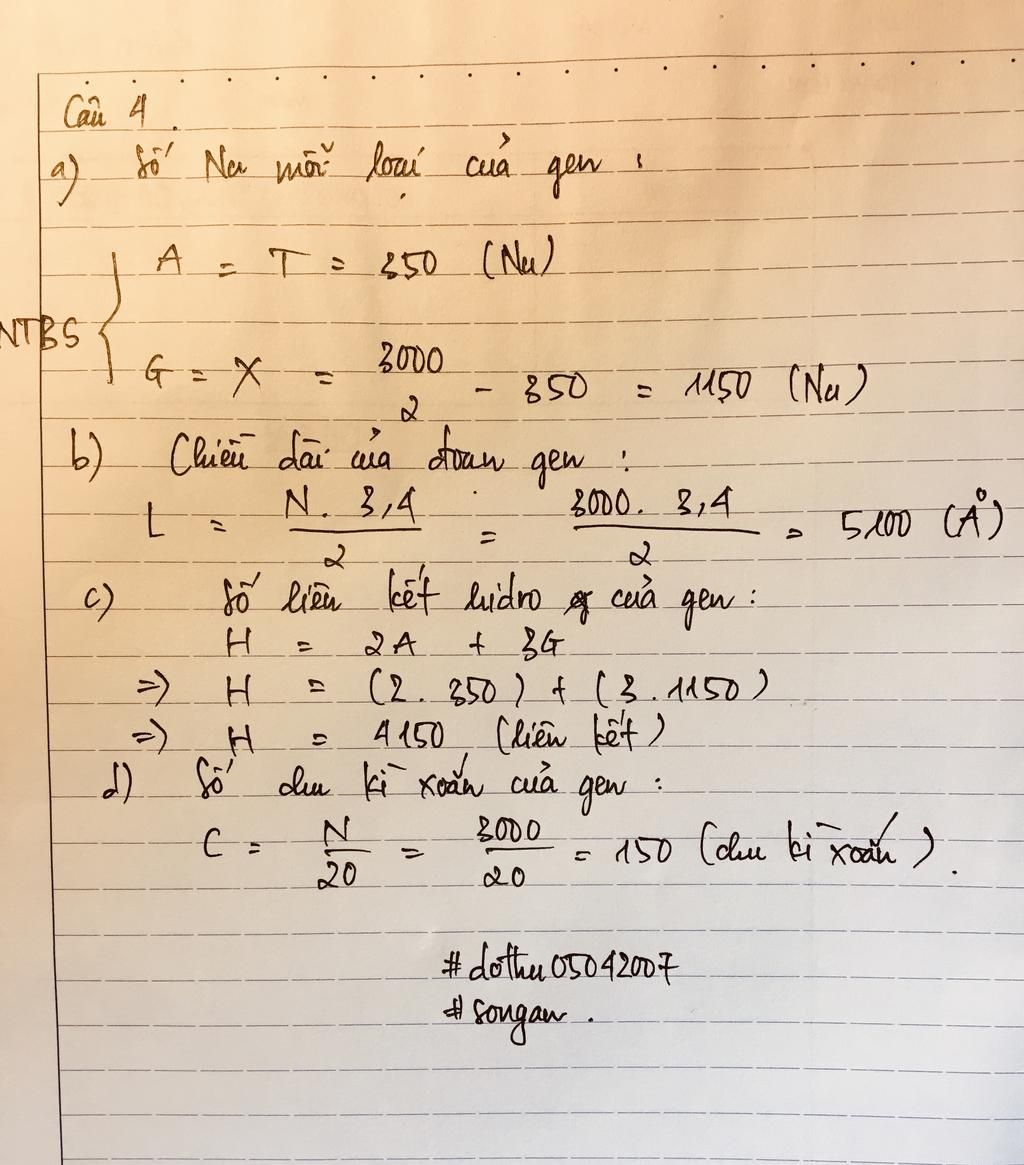 Câu 4.
a) Số Nu mỗi loại của gen :
A = T = 350 (Nu)
NTBS {
G = X = 3000/2 - 350 = 1150 (Nu)
b) Chiều dài của đoạn gen :
L = N. 3,4/2 = 3000. 3,4/2 = 5100 (Å)
c) Số liên kết hidro của gen :
H = 2A + 3G
=> H = (2. 350) + (3. 1150)
=> H = 4150 (liên kết)
d) Số chu kì xoắn của gen :
C = N/20 = 3000/20 = 150 (chu kì xoắn).
#dothu05042007
#songan.